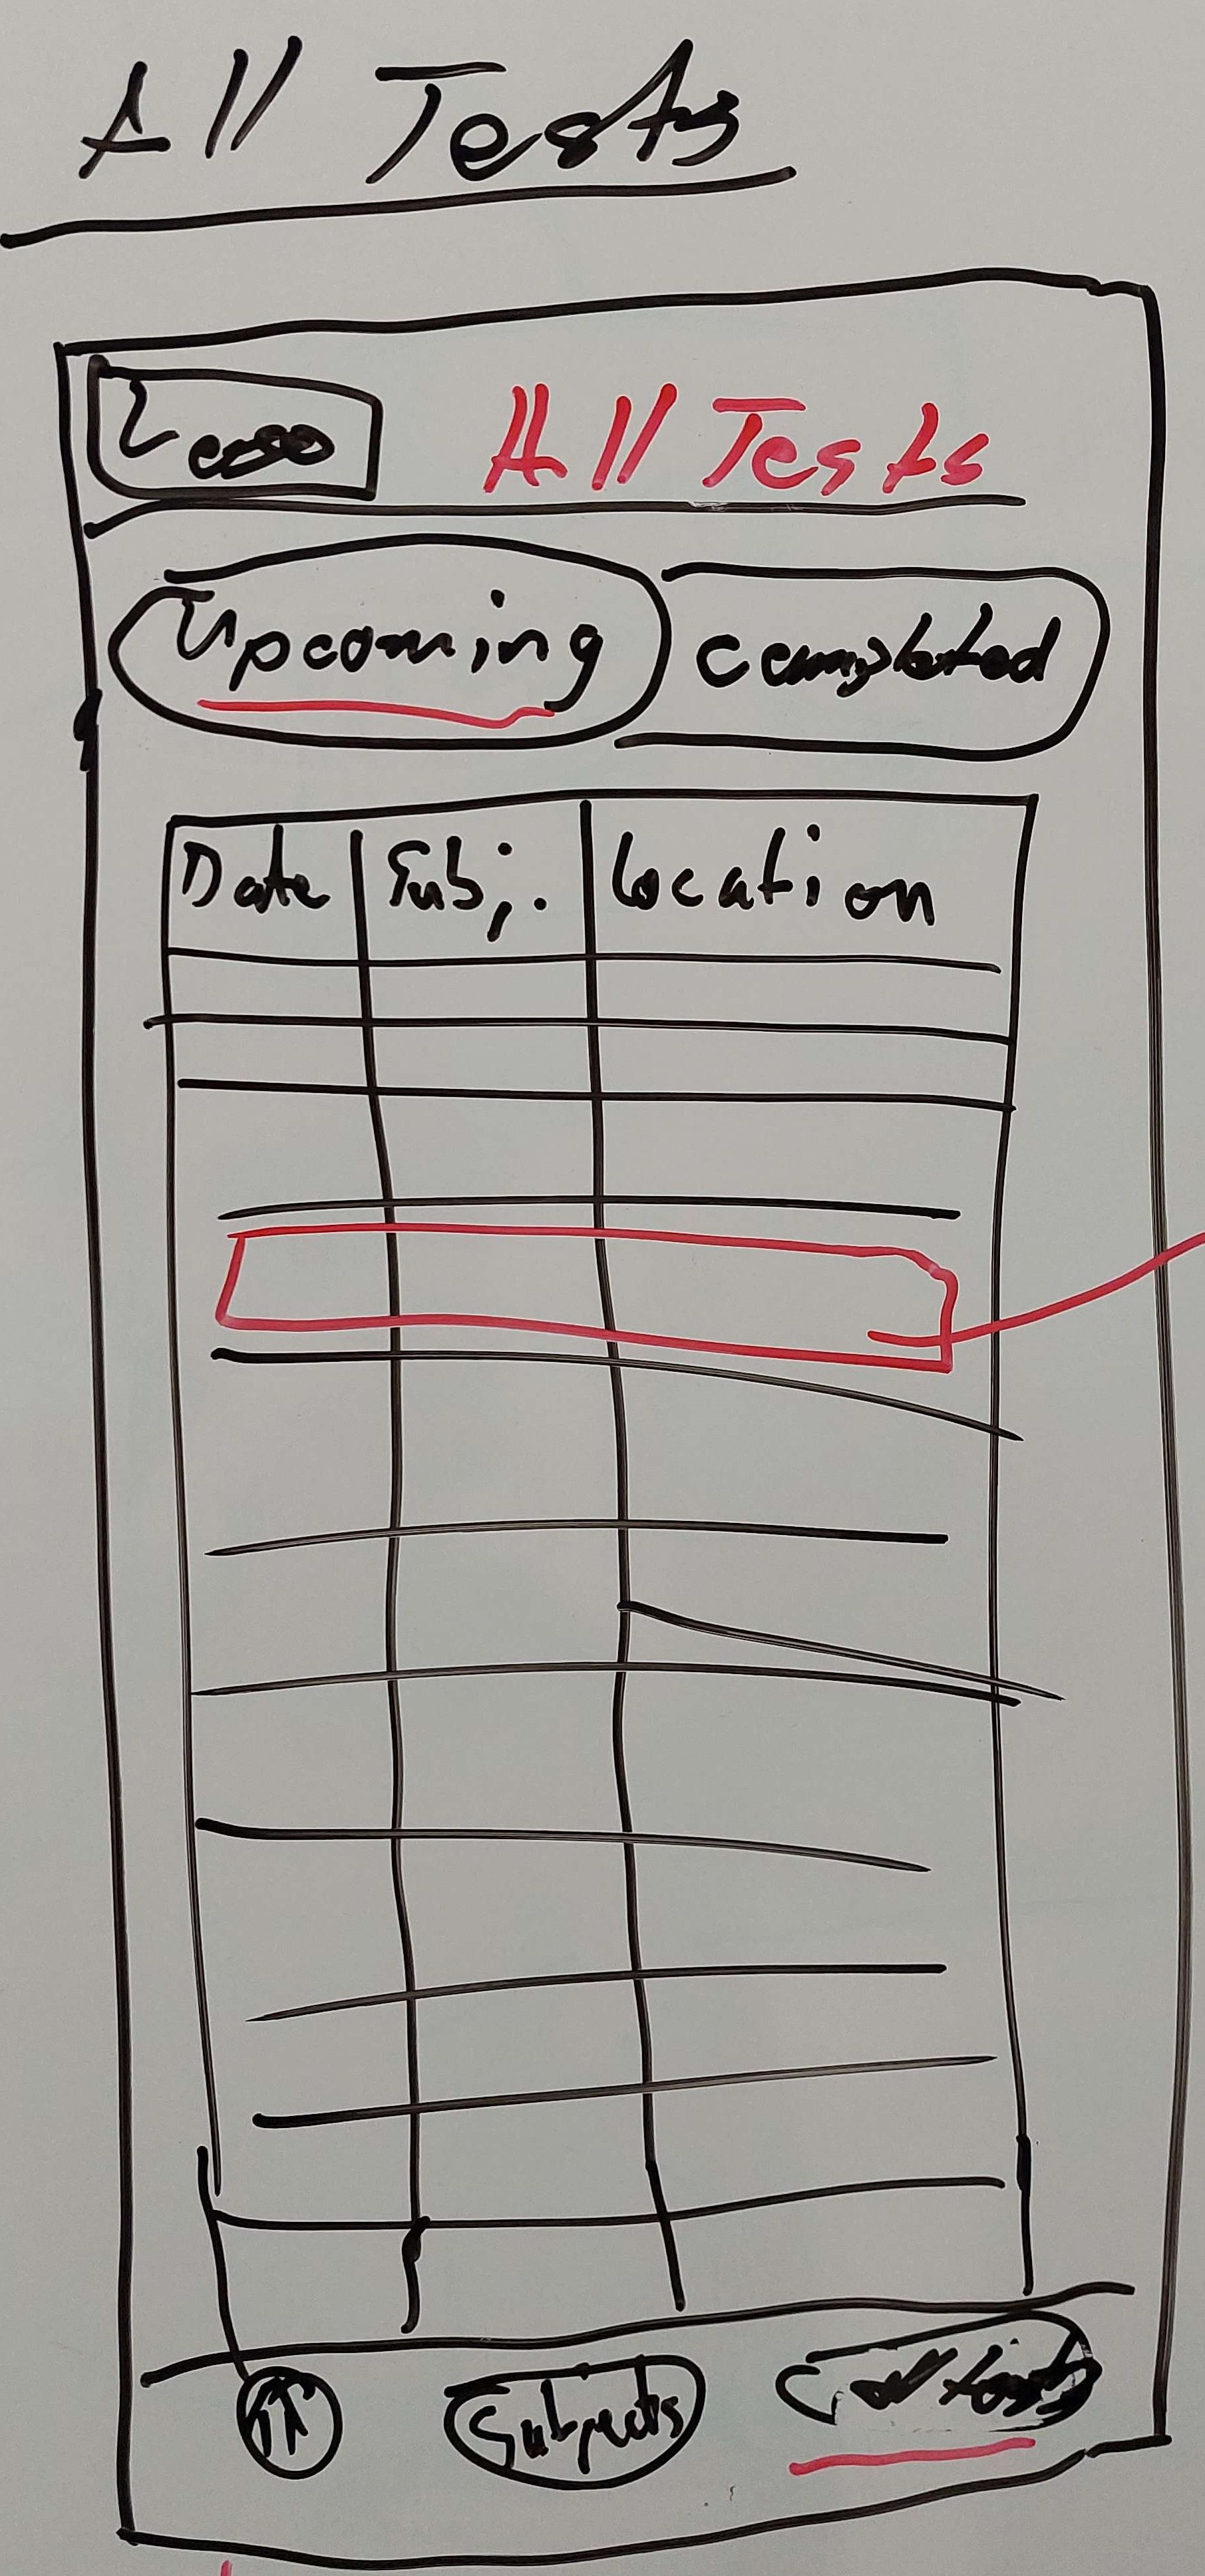 All Tests
Logo All Tests
Upcoming completed
Date Subj. Location
Subjects All tests